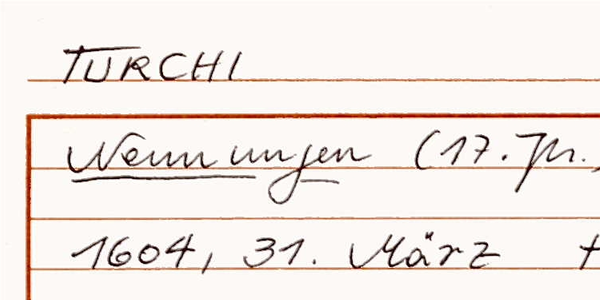 TURCHI
Nennungen (17. Jh.)
1604, 31. März †